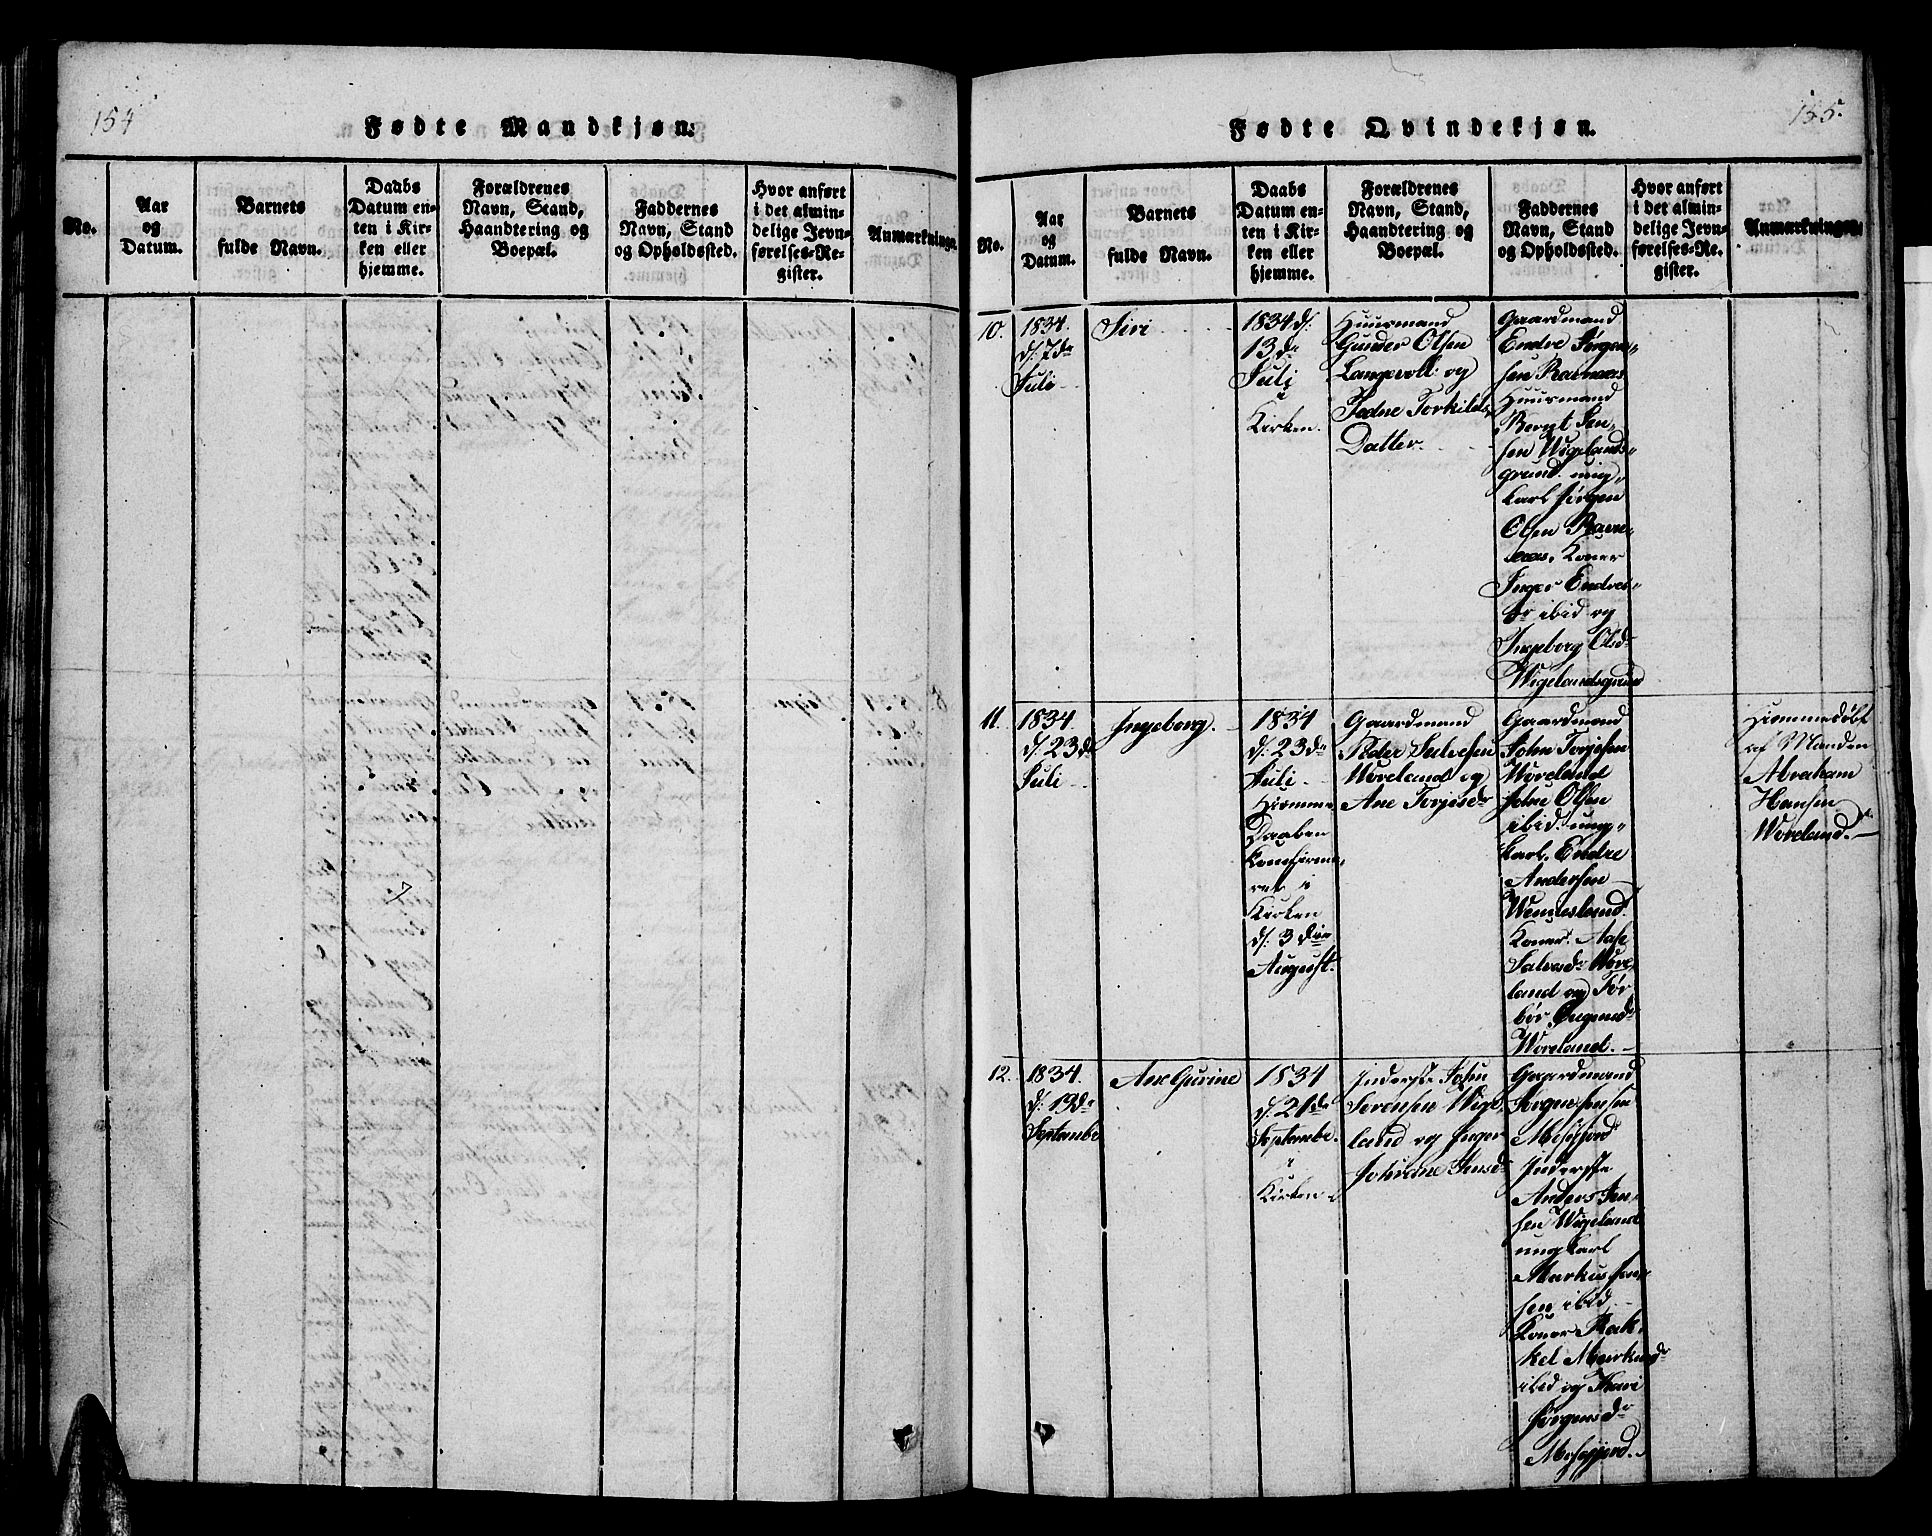 154
Fødte Mandkjøn.
No.
Aar
og
Datum.
Barnets
fulde Navn.
Daabs
Datum en-
ten i Kir-
ken eller
hjemme.
Forældrenes
Navn, Stand,
Haandtering og
Boepæl.
Faddernes
Navn, Stand
og Opholdssted.
Hvor anført
i det almin-
delige Jevn-
førelses-Re-
gister.
Anmærkninger.
155.
Fødte Qvindekjøn.
No.
Aar
og
Datum.
Barnets
fulde Navn.
Daabs
Datum en-
ten i Kir-
ken eller
hjemme.
Forældrenes
Navn, Stand,
Haandtering og
Boepæl.
Faddernes
Navn, Stand
og Opholdssted.
Hvor anført
i det almin-
delige Jevn-
førelses-Re-
gister.
Anmærkninger.
10.
1834.
d: 7de
Juli
Siri
1834 d:
13de
Juli
i
Kirken.
Huusmand
Gunder Olsen
Langevoll og
Tedne Torkilds
Datter.
Gaardmand
Endre Jørgen-
sen Ravnaas
Huusmand
Bernt Jen-
sen Wigelands-
grund. ung-
karl Jørgen
Olsen Ravne-
aas, Koner
Inger Endres-
dr ibid og
Ingeborg Olsdr
Wigelandsgrund
11.
1834.
d: 23de
Juli
Ingeborg.
1834
d: 23de
Juli
Hiemme
Daaben
Konfirme-
ret i
Kirken
d: 3die
August.
Gaardmand
Peder Salvesen
Woreland og
Ane Torjesdr
Gaardmand
John Torjesen
Woreland
Jone Olsen
ibid. ung-
karl. Endre
Andersen
Wennesland.
Koner. Aase
Salvesdr Wore-
land og Tor
bør
Woreland.
Hiemmedøbt
af Manden
Abraham
Hansen
Woreland.
12.
1834.
d: 19de
Septembr
Ane Gurine
1834
d: 21de
Septembr.
i
Kirken
Inderste John
Sørensen Wige-
land og Inger
Johanne Jensdr
Gaardmand
Jørgen Jensen
Mosfjord
Inderste
Anders Jen-
sen Wigeland
ungkarl
Markus Jen-
sen ibid
Koner Rak-
kel Markusdr
ibid og Kari
Jørgensdr
Mosfjord.